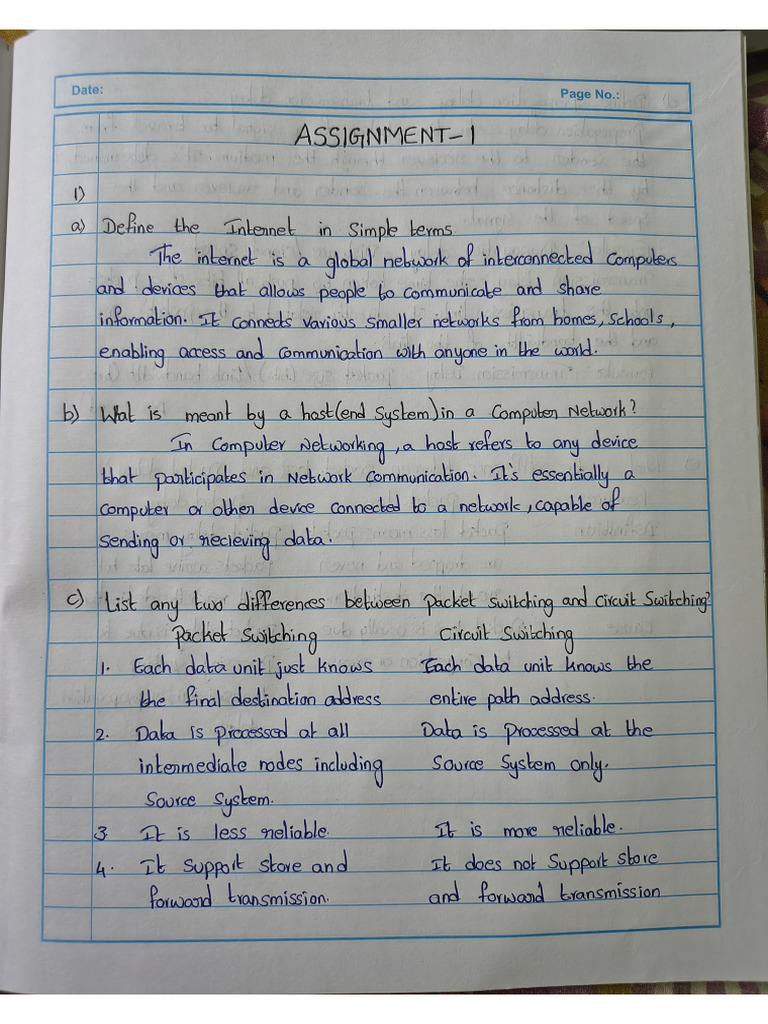 Date:
Page No.:
ASSIGNMENT-1
1)
a) Define the Internet in Simple terms
The internet is a global network of interconnected Computers
and devices that allows people to communicate and share
information. It connects various smaller networks from homes, schools,
enabling access and communication with anyone in the world.
b) Wat is meant by a host(end System) in a Computer Network?
In Computer Networking, a host refers to any device
that participates in Network communication. It's essentially a
Computer or other device connected to a network, capable of
Sending or recieving data.
c) List any two differences between Packet Switching and Circuit Switching?
Packet Switching Circuit Switching
1. Each data unit just knows Each data unit knows the
the final destination address entire path address.
2. Data is processed at all Data is processed at the
intermediate nodes including Source System only.
Source System.
3 It is less reliable. It is more reliable.
4. It Support Store and It does not Support store
forward transmission. and forward transmission